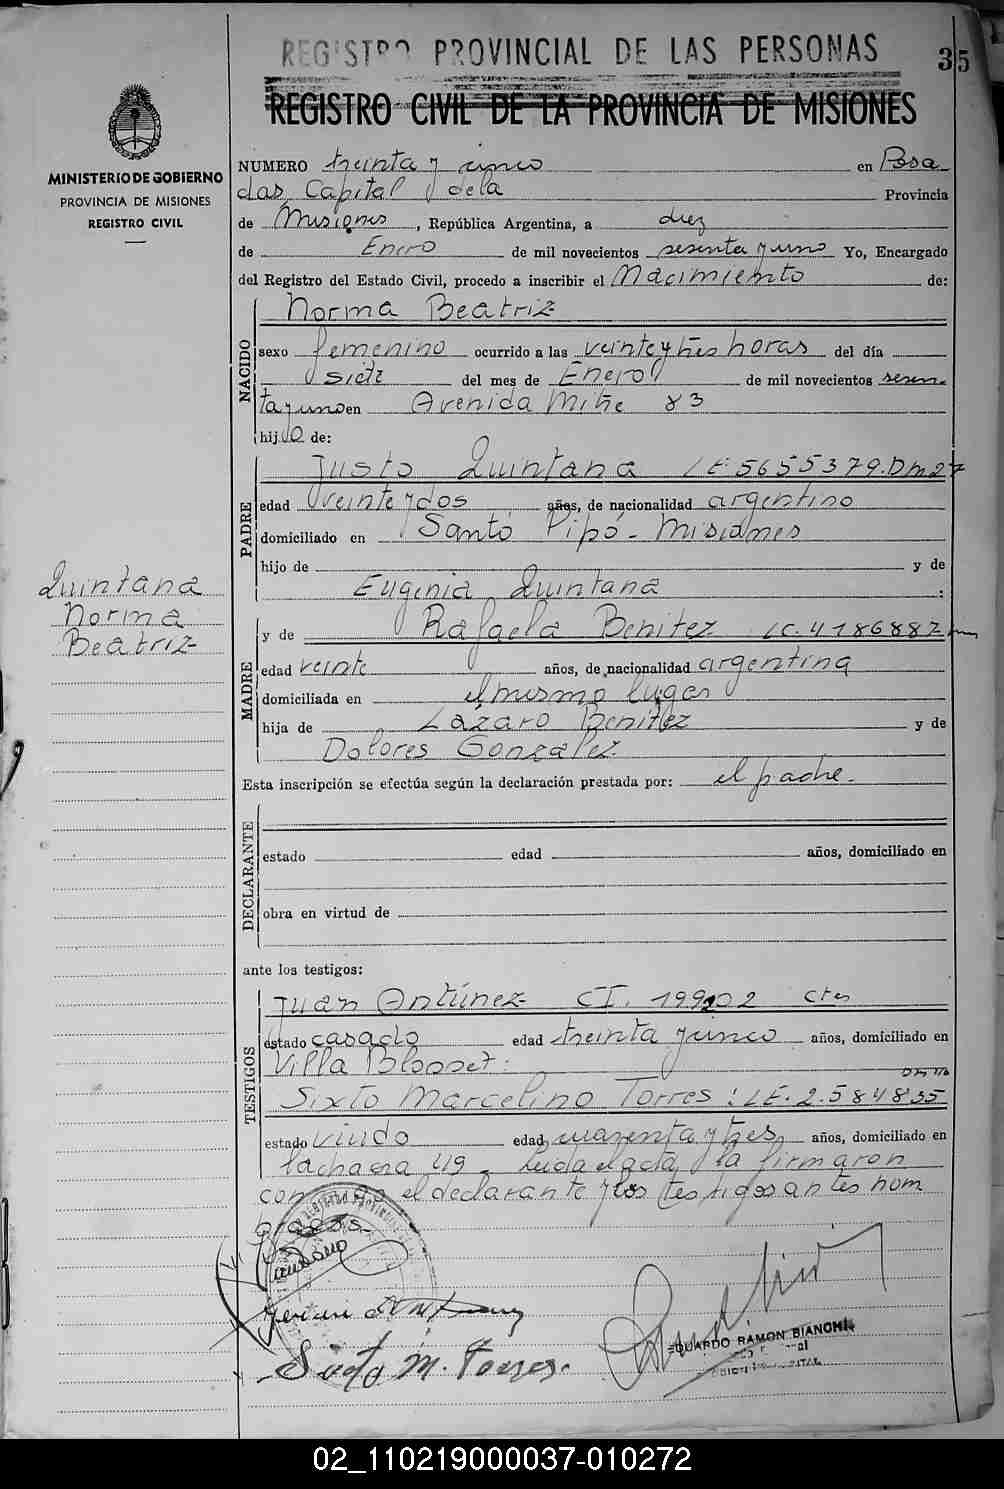 REGISTRO PROVINCIAL DE LAS PERSONAS
35
REGISTRO CIVIL DE LA PROVINCIA DE MISIONES
MINISTERIO DE GOBIERNO
PROVINCIA DE MISIONES
REGISTRO CIVIL
NUMERO treinta y cinco en Posa
das Capital dela Provincia
de Misiones, República Argentina, a diez
de Enero de mil novecientos sesenta y uno Yo, Encargado
del Registro del Estado Civil, procedo a inscribir el Nacimiento de:
NACIDO
Norma Beatriz
sexo femenino ocurrido a las veinte y tres horas del día
siete del mes de Enero de mil novecientos sesen
ta y uno en Avenida Mitre 83
hija de:
PADRE
Justo Quintana LE 5655379. Dm 27
edad veinte y dos años, de nacionalidad argentino
domiciliado en Santo Pipó - Misiones
hijo de y de
Eugenia Quintana
Quintana
Norma
Beatriz
MADRE
y de Rafaela Benitez LC. 4186887
edad veinte años, de nacionalidad argentina
domiciliada en el mismo lugar
hija de Lázaro Benitez y de
Dolores Gonzalez
Esta inscripción se efectúa según la declaración prestada por: el padre.
DECLARANTE
estado edad años, domiciliado en
obra en virtud de
ante los testigos:
TESTIGOS
Juan Antúnez CI. 199202 Ctes
estado casado edad treinta y cinco años, domiciliado en
Villa Blosset:
Sixto Marcelino Torres: LE. 2.584835
estado viudo edad cuarenta y tres años, domiciliado en
la chacra 49 - Leida el acta, la firmaron
con el declarante y los testigos antes nom
brados
Sixto M. Torres.
EDUARDO RAMON BIANCHI
02_110219000037-010272